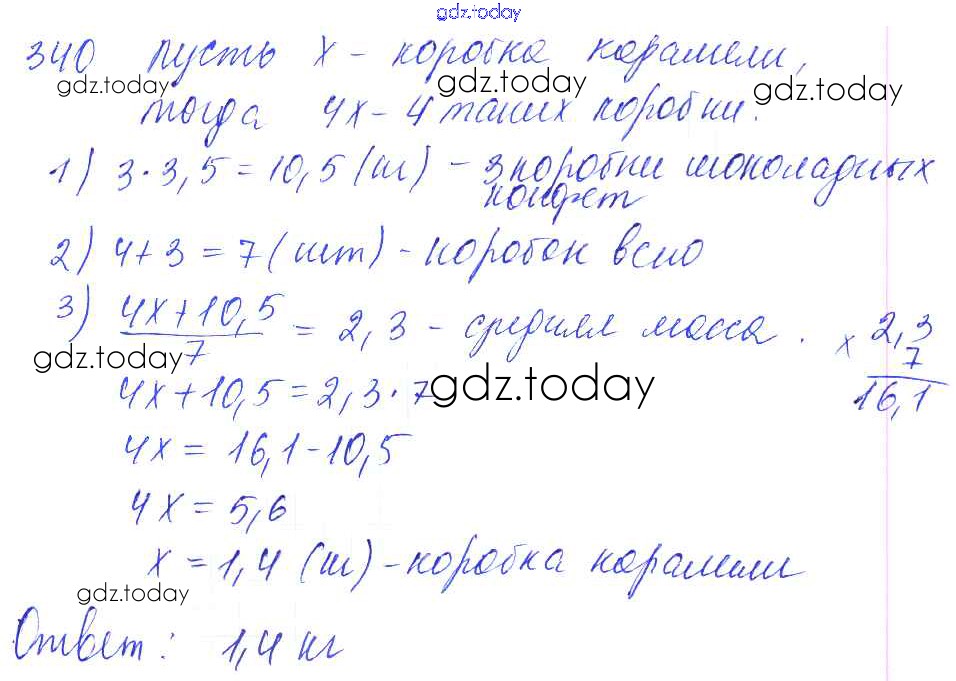 gdz.today
340 пусть х - коробка карамели,
gdz.today gdz.today gdz.today
тогда 4х - 4 таких коробки.
1) 3·3,5=10,5 (кг) - 3 коробки шоколадных
конфет
2) 4+3=7 (шт) - коробок всего
3) 4х+10,5 / 7 = 2,3 - средняя масса. х 2,3
7
16,1
gdz.today
4х+10,5=2,3·7
gdz.today
4х = 16,1-10,5
4х = 5,6
х = 1,4 (кг) - коробка карамели
gdz.today gdz.today
Ответ: 1,4 кг
gdz.today